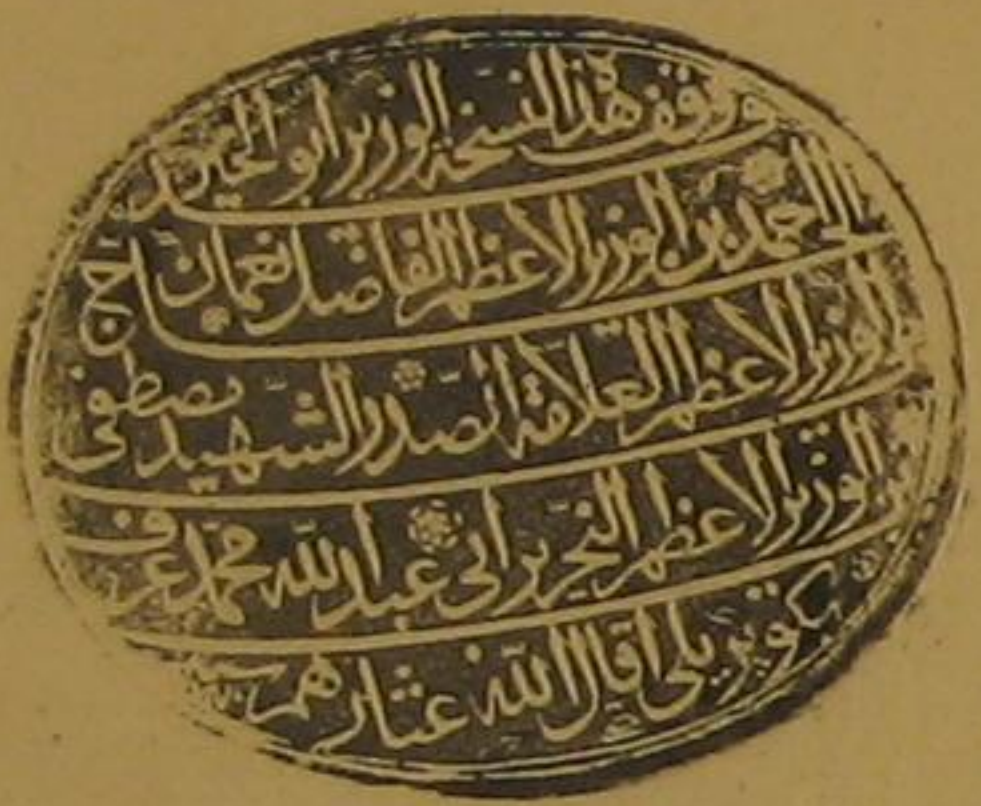 وقف هذه النسخة الوزير ابو الخير
الحاج احمد بن الوزير الاعظم الفاضل نعمان
بن الوزير الاعظم العلامة الصدر الشهيد مصطفى
بن الوزير الاعظم النحرير ابي عبد الله محمد عرف
بكوبريلي اقال الله عثارهم